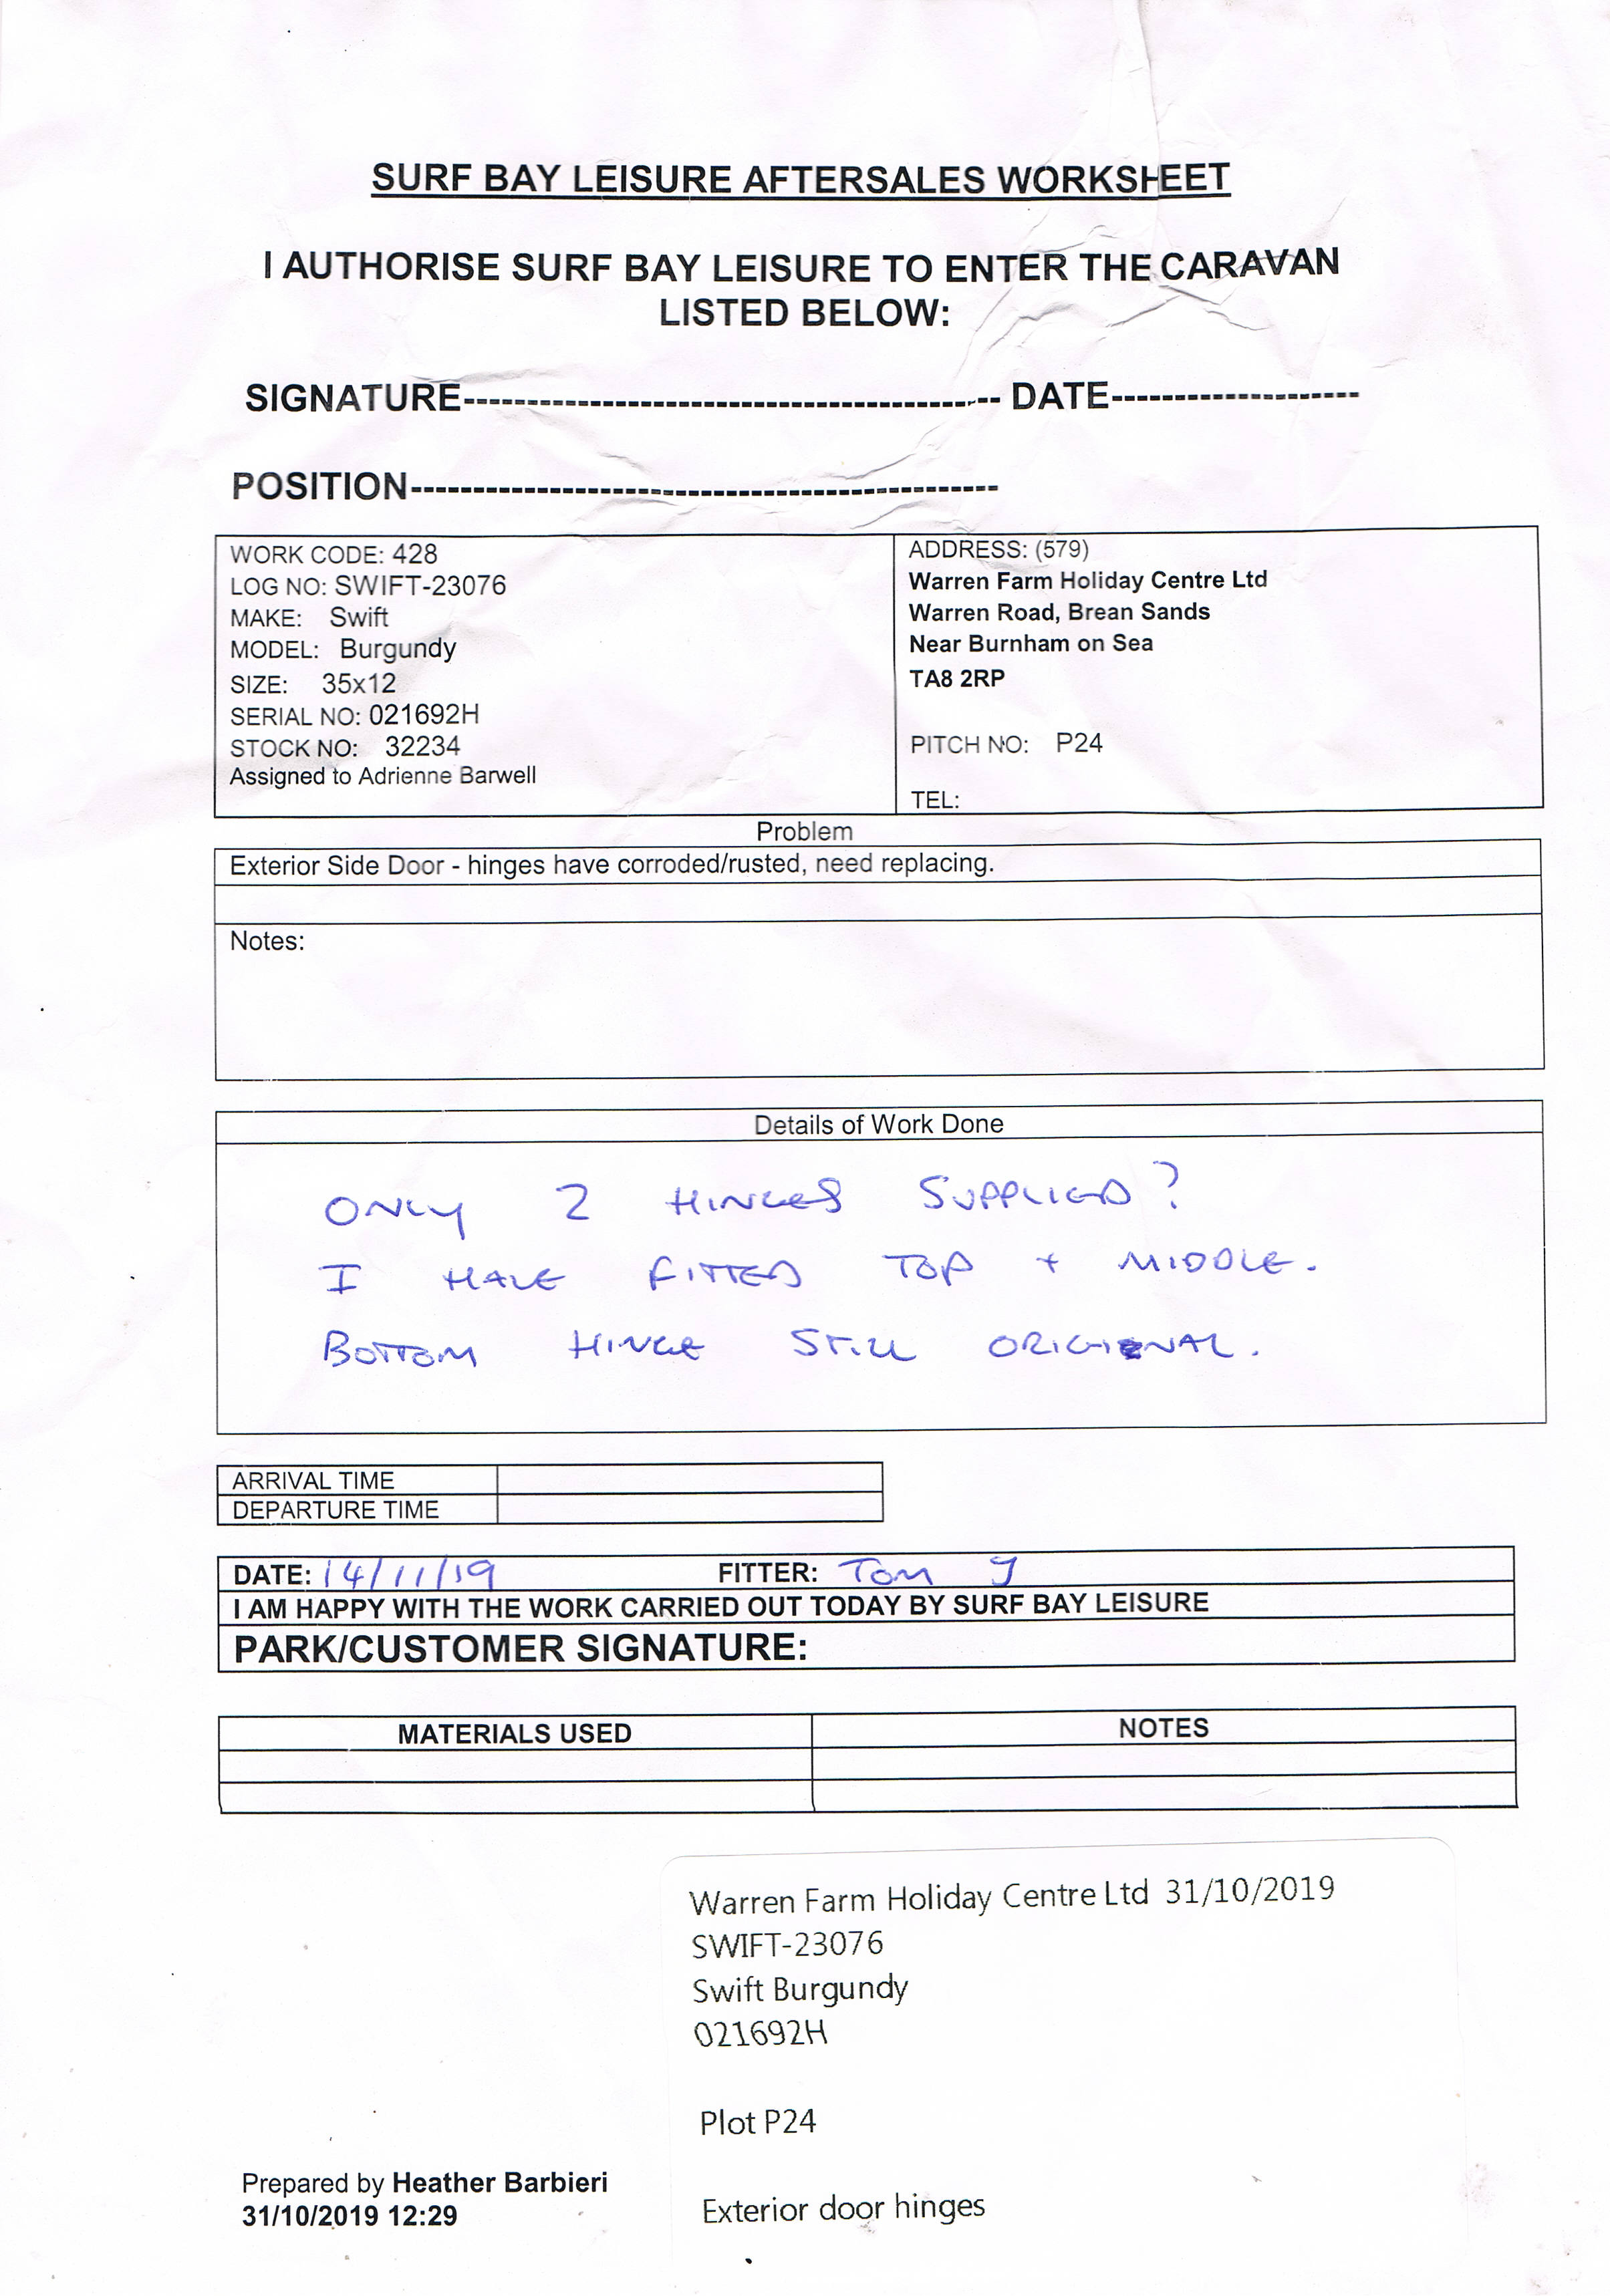 SURF BAY LEISURE AFTERSALES WORKSHEET
I AUTHORISE SURF BAY LEISURE TO ENTER THE CARAVAN
LISTED BELOW:
SIGNATURE------------------------------------------- DATE--------------------
POSITION-----------------------------------------------
WORK CODE: 428
LOG NO: SWIFT-23076
MAKE: Swift
MODEL: Burgundy
SIZE: 35x12
SERIAL NO: 021692H
STOCK NO: 32234
Assigned to Adrienne Barwell
ADDRESS: (579)
Warren Farm Holiday Centre Ltd
Warren Road, Brean Sands
Near Burnham on Sea
TA8 2RP
PITCH NO: P24
TEL:
Problem
Exterior Side Door - hinges have corroded/rusted, need replacing.
Notes:
Details of Work Done
ONLY 2 HINGES SUPPLIED?
I HAVE FITTED TOP + MIDDLE.
BOTTOM HINGE STILL ORIGIENAL.
ARRIVAL TIME
DEPARTURE TIME
DATE: 14/11/19 FITTER: Tom J
I AM HAPPY WITH THE WORK CARRIED OUT TODAY BY SURF BAY LEISURE
PARK/CUSTOMER SIGNATURE:
MATERIALS USED NOTES
Warren Farm Holiday Centre Ltd 31/10/2019
SWIFT-23076
Swift Burgundy
021692H
Plot P24
Exterior door hinges
Prepared by Heather Barbieri
31/10/2019 12:29